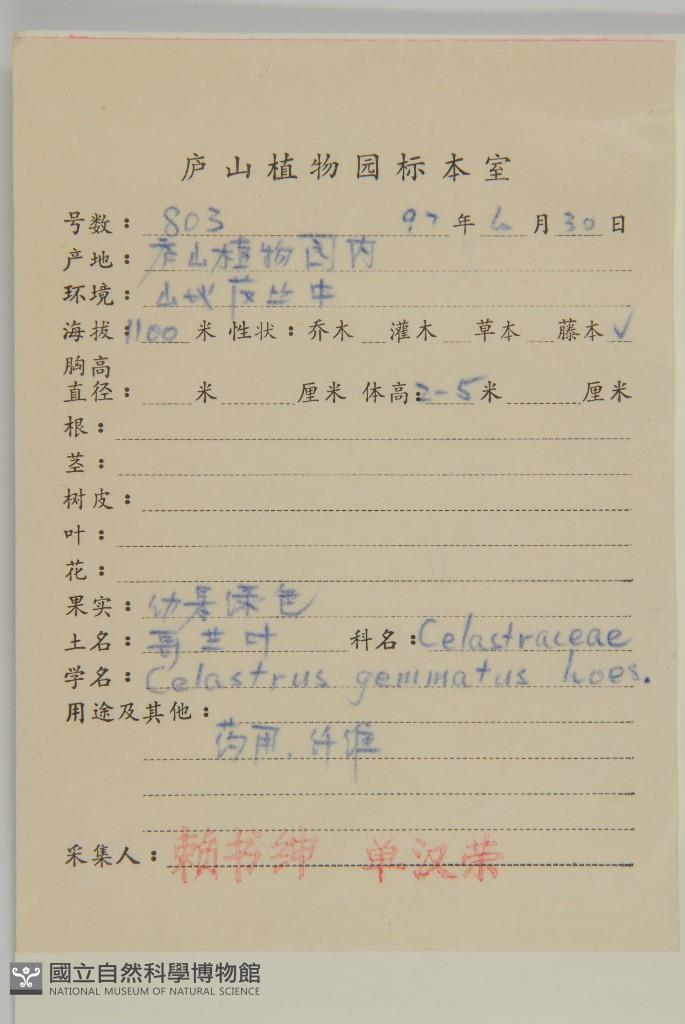 庐山植物园标本室
号数：803 97年6月30日
产地：庐山植物园内
环境：山地 丛中
海拔：1100米 性状：乔木 灌木 草本 藤本✓
胸高
直径： 米 厘米 体高：2-5米 厘米
根：
茎：
树皮：
叶：
花：
果实：幼果绿色
土名：哥兰叶 科名：Celastraceae
学名：Celastrus gemmatus loes.
用途及其他：
药用、纤维
采集人：赖书绅 单汉荣
國立自然科學博物館
NATIONAL MUSEUM OF NATURAL SCIENCE